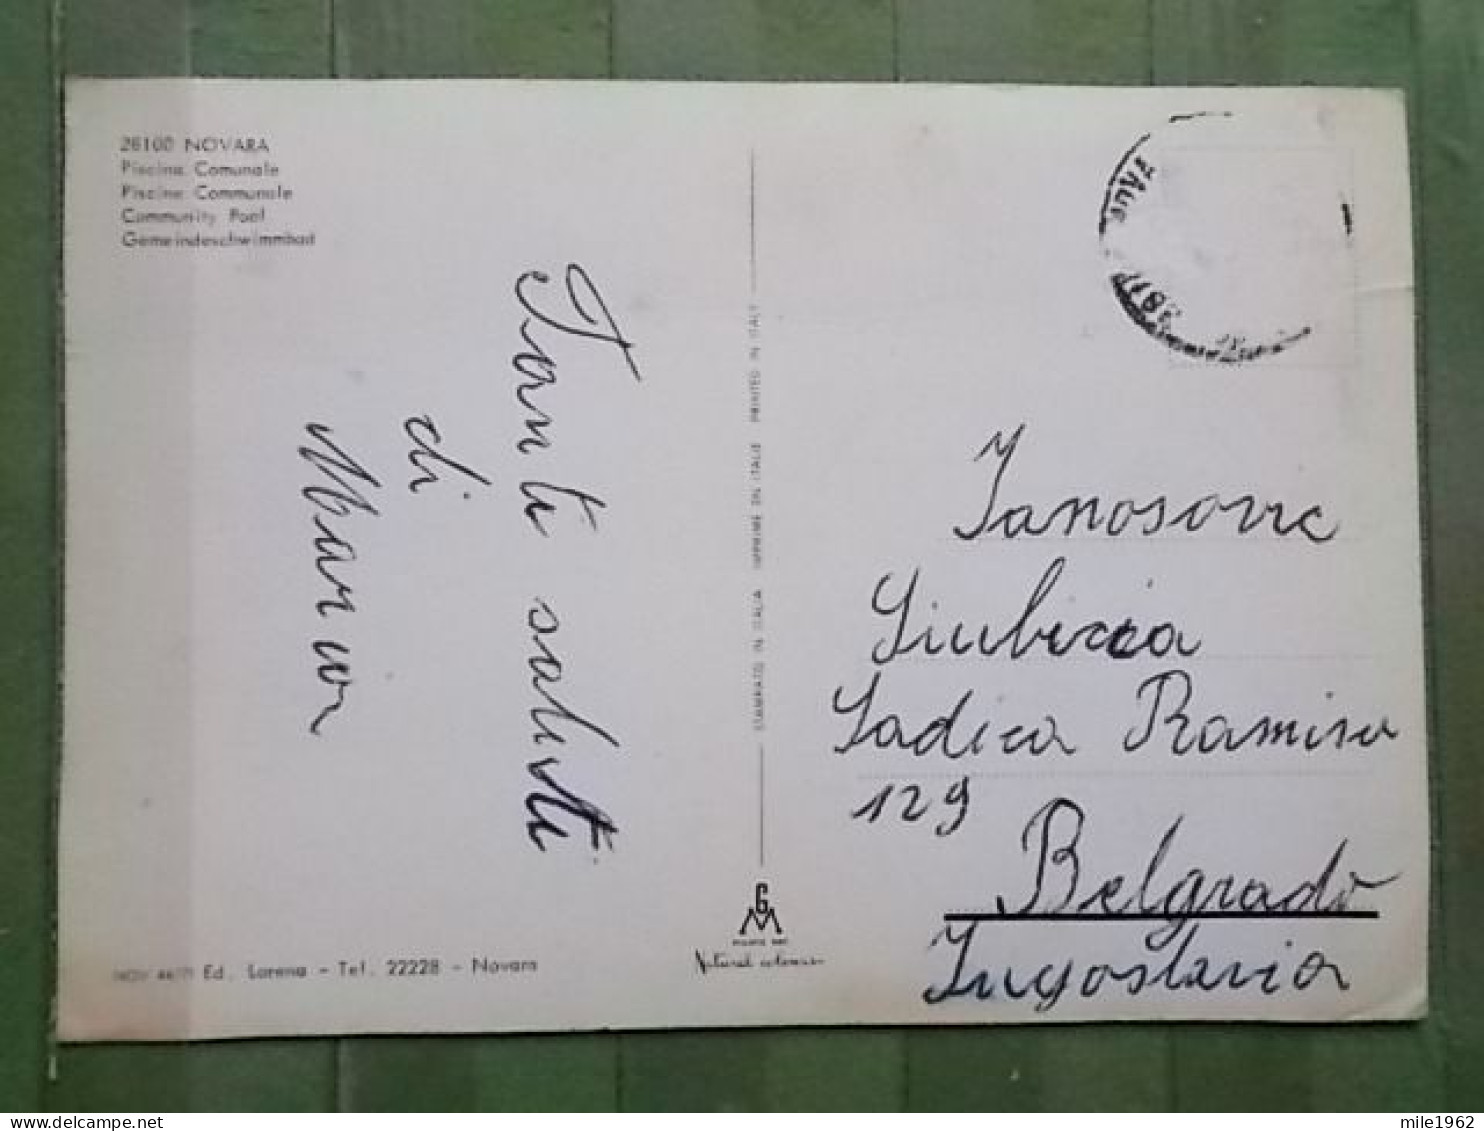 28100 NOVARA
Piscina Comunale
Piscine Communale
Community Pool
Gemeindeschwimmbad
Tanti saluti
di
STAMPATO IN ITALIA IMPRIMÉ EN ITALIE PRINTED IN ITALY
Ianosovic
Giubicia
Ladica Ramisa
129
Belgrado
Iugoslavia
GM
Natural colours
Ed. Lorena - Tel. 22228 - Novara
mile1962